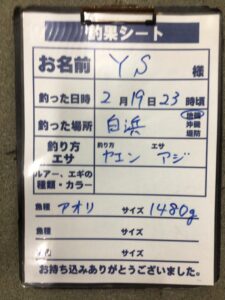 釣果シート
お名前 YS 様
釣った日時 2月19日23時頃
釣った場所 白浜 地磯 沖磯 堤防
釣り方 エサ 釣り方 ヤエン エサ アジ
ルアー、エギの種類・カラー
魚種 アオリ サイズ 1480g
魚種 サイズ
サイズ
お持ち込みありがとうございました。